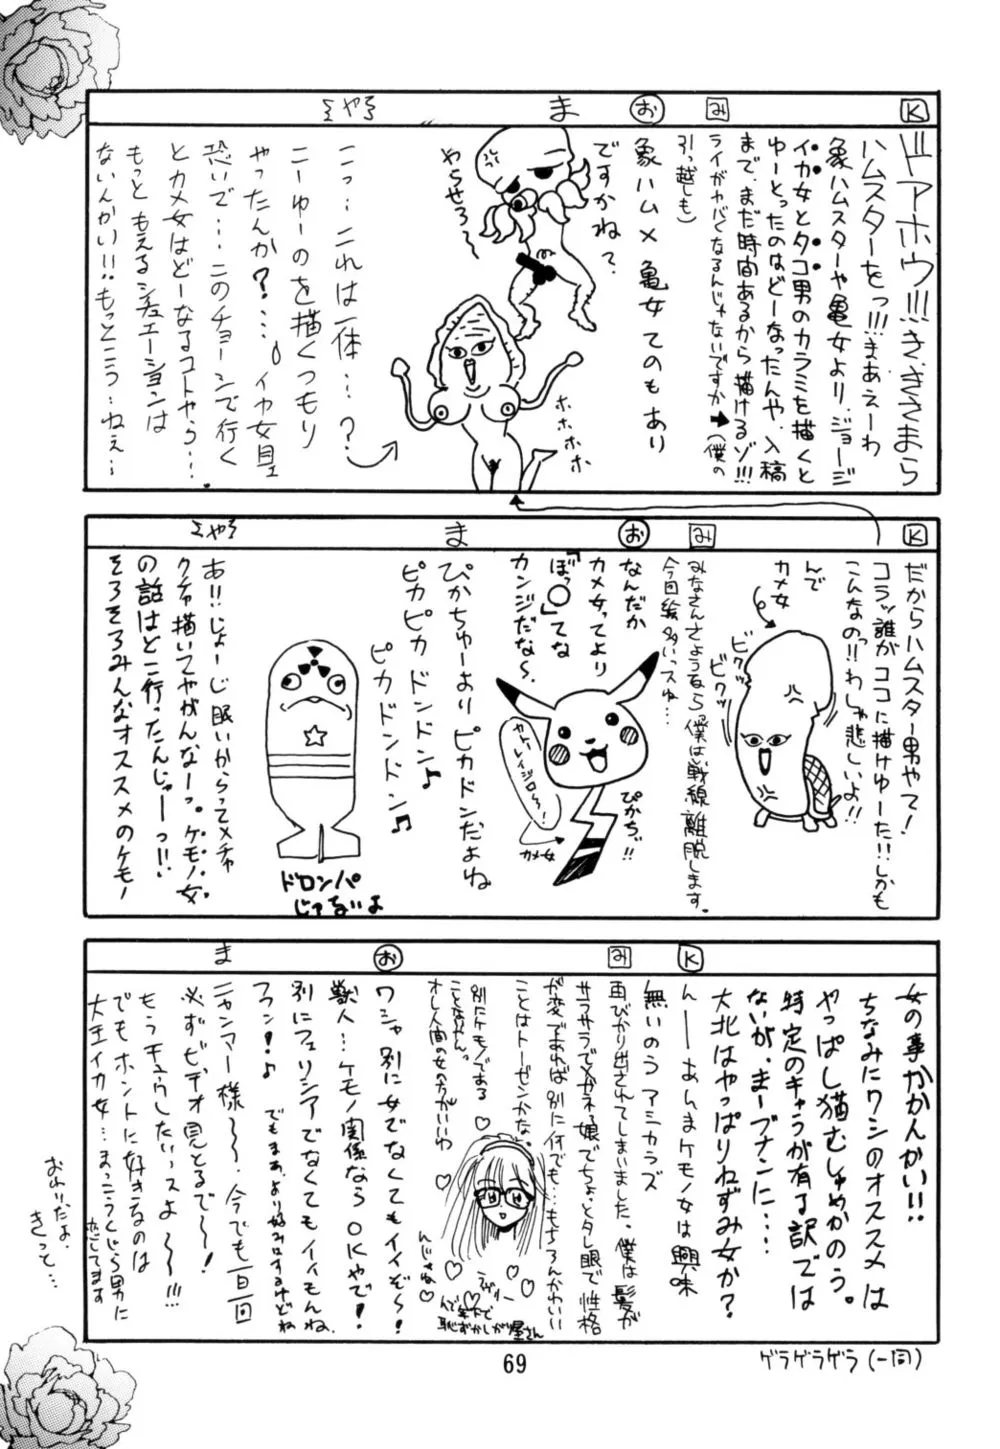 K
ドアホウ!!!き、きさまら
ハムスターをっ!!!まあえーわ
象ハムスターや亀女より、ジョージ
イカ女とタコ男のカラミを描くと
ゆーとったのはどーなったんや、入稿
まで、まだ時間あるから描けるゾ!!!
み
ライがヤバくなるんじゃないですか➡(僕の
引っ越しも)
お
象ハム×亀女てのもあり
ですかね?
ま
やらせろ〜
ホホホホホ
ミヤミ
こっ…これは一体…?
こーゆーのを描くつもり
やったんか?…。イカ女且
恐いで…このチョーシで行く
とカメ女はどーなるコトやら…
もっともえるシチュエーションは
ないんかい!!もっとこう…ねぇ…
K
だからハムスター男やて!
コラッ誰がココに描けゆーた!!しかも
こんなのっ!!わしゃ悲しいよ!!
んで
カメ女
ビクッ
ビクッ
み
みなさんさようなら、僕は戦線離脱します。
今回絵多いっスね…
お
なんだか
カメ女ってより
「ぼっ○」てな
カンジだな〜。
ぴかぢゅ!!
カメ女
ま
ぴかちゅーよりピカドンだよね
ピカピカドンドン♪
ピカドンドン♫
ドロンパ
じゃないよ
ミヤミ
あ!!じょーじ眠いからってメチャ
クチャ描いてやがんなーっ。ケモノ女
の話はどこ行ったんじゃーっ!!
そろそろみんなオススメのケモノ
女の事かかんかい!!
ちなみにワシのオススメは
やっぱし猫むしゅめかのう。
特定のキャラが有る訳では
ないが、まーブナンに…
大北はやっぱりねずみ女か?
K
んーーあんまケモノ女は興味
無いのう アシカラズ
み
再びかり出されてしまいました。僕は髪が
サラサラでメガネ娘でちょっとタレ眼で性格
が変であれば別に何でも…もちろんかわいい
ことはトーゼンかな。
別にケモノである
ことないやんっ
オレ人間の女の方がいいわ
んじゃね♡
んで年下で
恥ずかしがり屋さん
お
ワシャ別に女でなくてもイイぞ〜!
獣人…ケモノ関係ならOKやで!
別にフェリシアでなくてもイイもんね。
フフン!♪
でもまあ、より好みはするけどね
ま
ニャンマー様〜〜。今でも一日一回
必ずビデオ見とるで〜!
もうチュウしたいっスよ〜〜!!!
でもホントに好きなのは
大王イカ女…まっこうくじら男に
恋してます
おわりだよ、
きっと…
69
ゲラゲラゲラ(一同)